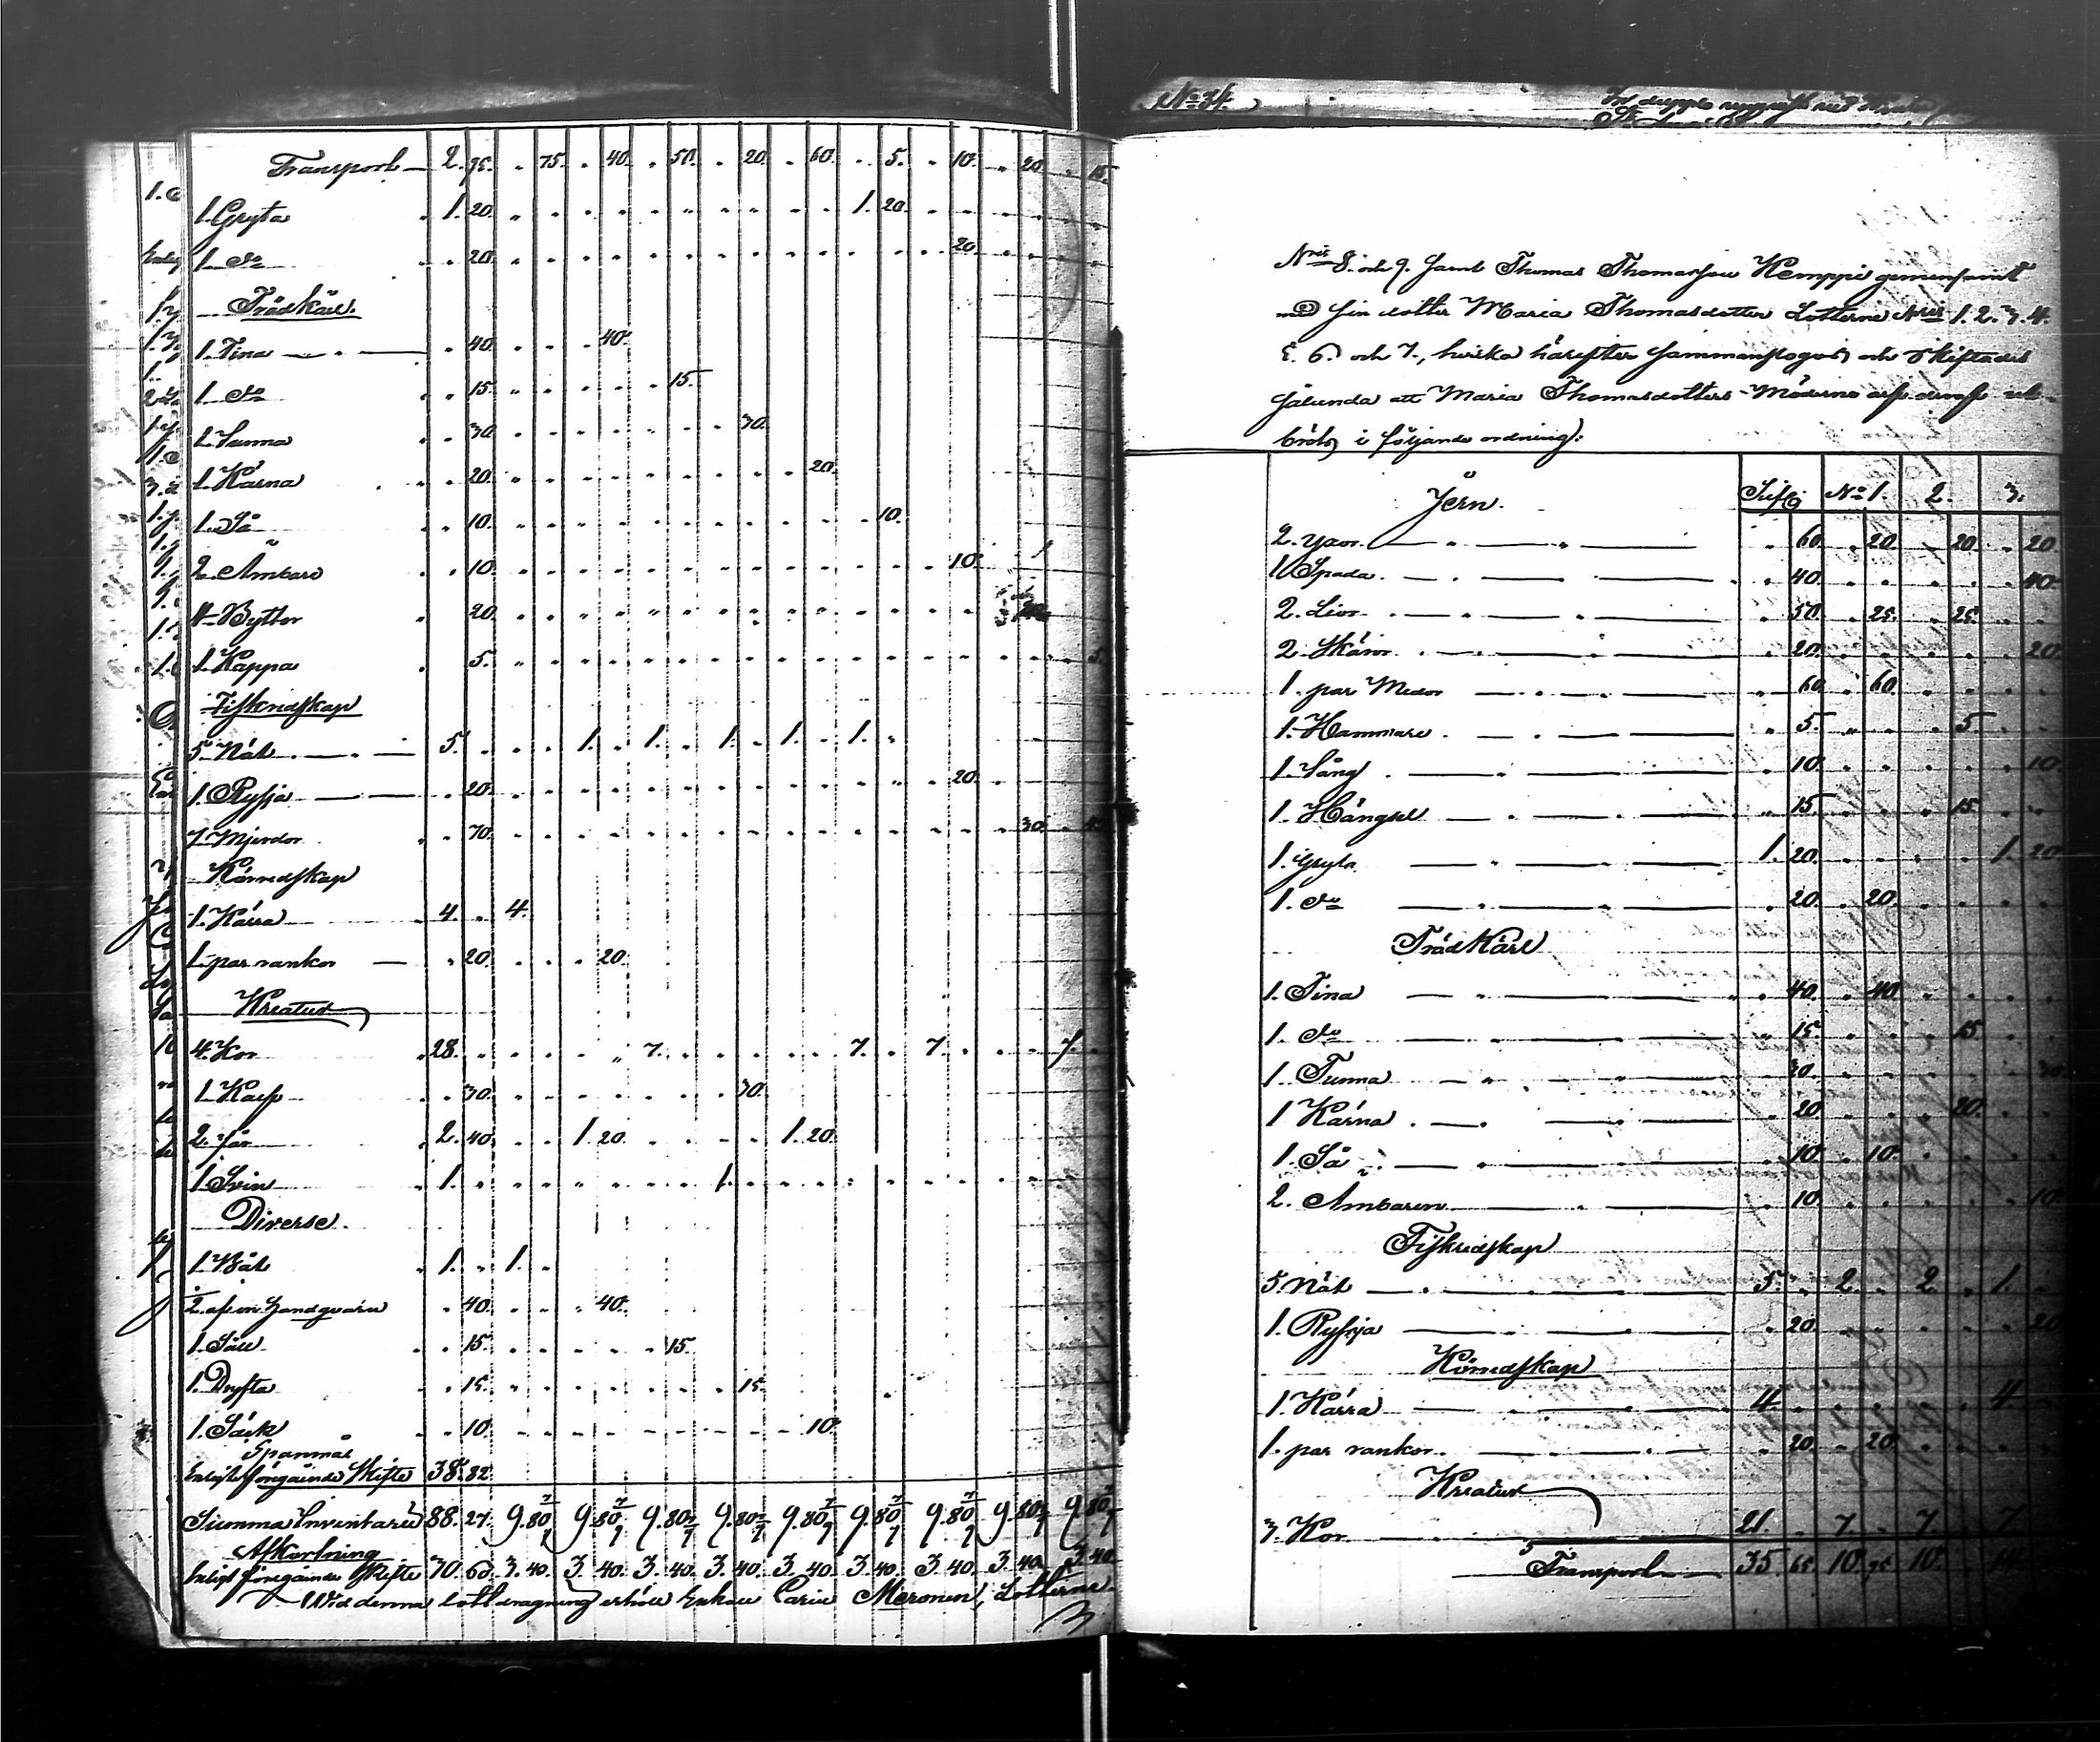 Transport — 2. 95. . 75. . 40. . 50. . 20. . 60. . 5. . 10. . 20. . 15.
1. Gryta 1. 20. 1. 20.
1. d:o 20. 20.
Trädkäril.
1. Tina 40. 40.
1. d:o 15. 15.
1. Tunna 30. 30.
1. Kärna 20. 20.
1. Så 10. 10.
2. Ämbare 10. 10.
4. Byttor 20.
1. Kappa 5. 5.
Fiskredskap
5 Nät 5. 1. 1. 1. 1. 1.
1. Ryssja 20. 20.
7 Mjerdor 70. 30.
Köredskap
1. Kärra 4. 4.
1. par rankor 20. 20.
Kreatur
4. Kor 28. 7. 7. 7. 7.
1 Kalf 30. 30.
2. får 2. 40. 1. 20. 1. 20.
1 Svin 1. 1.
Diverse.
1 Båt 1. 1.
½ af en handqvarn 40. 40.
1 Såll 15. 15.
1. Dryfta 15. 15.
1. Säck 10. 10.
Spanmål
Enligt föregående Skifte 38. 82
Summa Inventarii 88. 27. 9.80 7/9 9.80 7/9 9.80 7/9 9.80 7/9 9.80 7/9 9.80 7/9 9.80 7/9 9.80 7/9 9.80 7/9
Afkortning
Enligt föregående Skifte 30. 60. 3. 40. 3. 40. 3. 40. 3. 40. 3. 40. 3. 40. 3. 40. 3. 40. 3. 40
Vid denna lottdragning erhöll Enkan Carin Meronen, Lotterne
No 74.
N:ris 8. och 9. samt Thomas Thomasson Kemppi gemensamt
med sin dotter Maria Thomasdotter Lotterne N:ris 1. 2. 3. 4.
5. 6. och 7., hvilka härefter sammanslogos och skiftades
sålunda att Maria Thomasdotters Möderne arf deraf ut-
bröts i följande ordning:
Jern. No 1. 2. 3.
2. Yxor 60. 20. 20. 20.
1 Spada 40. 40.
2. Liar 50. 25. 25.
2. Skäror 20. 20.
1. par Medar 60. 60.
1. Hammare 5. 5.
1. Tång 10. 10.
1. Hängsel 15. 15.
1. Gryta 1. 20. 1. 20
1. d:o 20. 20.
Träd Kärl
1. Tina 40. 40.
1. d:o 15. 15.
1. Tunna 30. 30
1 Kärna 20. 20.
1. Så 10. 10.
2. Ämbaren 10. 10.
Fiskredskap
5. Nät 5. 2. 2. 1.
1. Ryssja 20. 20
Köredskap
1. Kärra 4. 4
1. par rankor 20. 20.
Kreatur
3. Kor 21. 7. 7. 7
Transport 35 65 10. 95 10.